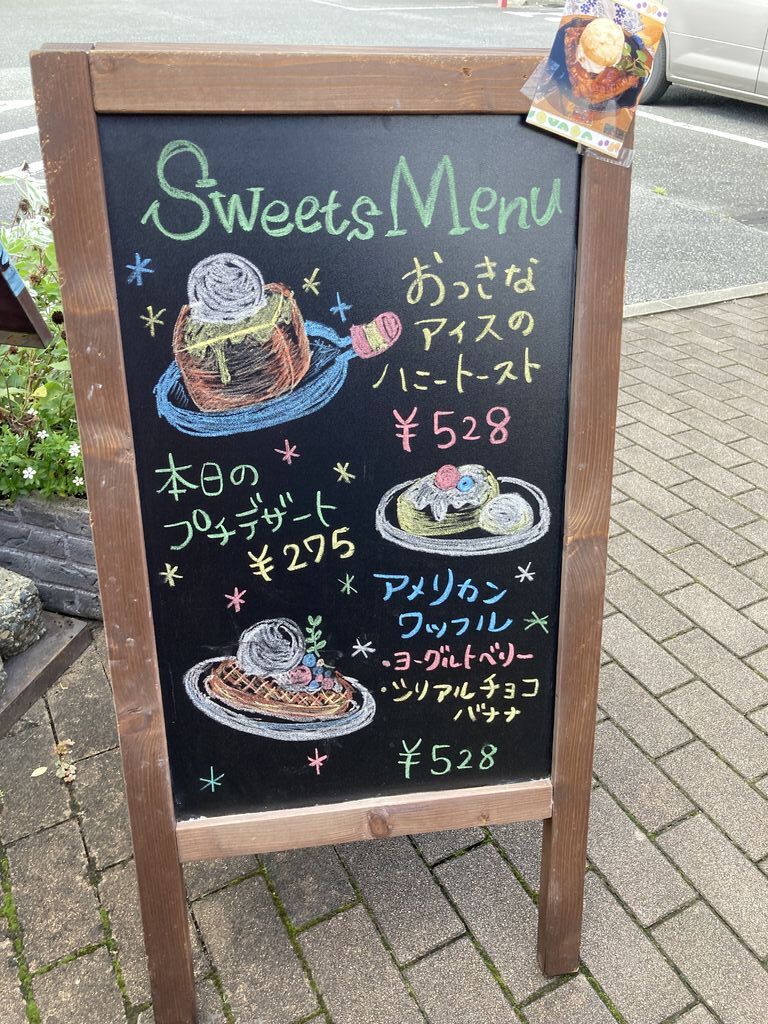 Sweets Menu
おっきな
アイスの
ハニートースト
¥528
本日の
プチデザート
¥275
アメリカン
ワッフル
・ヨーグルトベリー
・シリアルチョコ
バナナ
¥528